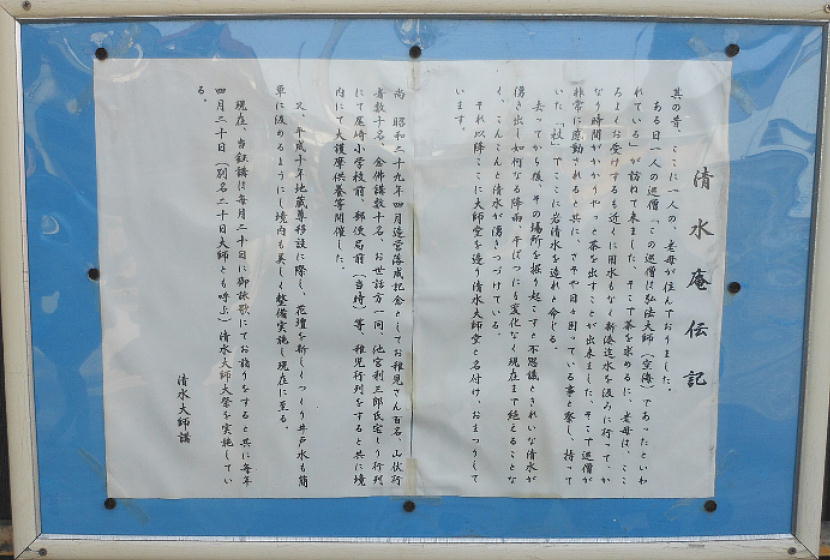 清水庵伝記
其の昔、ここに一人の、老母が住んでおりました。
ある日一人の巡僧「この巡僧は弘法大師(空海)であったといわ
れている」が訪ねて来ました、そこで茶を求めるに、老母は、ここ
ろよくお受けするも近くに用水もなく新港迄水を汲みに行って、か
なり時間がかかりやっと茶を出すことが出来ました、そこで巡僧が
非常に感動されると共に、さぞや日々困っている事と察し、持って
いた「杖」でここに岩清水を造れと命じる。
去ってから後、その場所を掘り起こすと不思議ときれいな清水が
湧き出し如何なる降雨、干ばつにも変化なく現在まで絶えることな
く、こんこんと清水が湧きつづけている。
それ以降ここに大師堂を造り清水大師堂と名付け、おまつりして
います。
尚、昭和二十九年四月造営落成記念としてお稚児さん百名、山伏行
者数十名、念佛講数十名、お世話方一同、池宮利三郎氏宅より行列
にて尾崎小学校前、郵便局前(当時)等、稚児行列をすると共に境
内にて大護摩供養等開催した。
又、平成十年地蔵尊移設に際し、花壇を新しくつくり井戸水も簡
単に汲めるようにし境内も美しく整備実施し現在に至る。
現在、当講は毎月二十日に御詠歌にてお詣りをすると共に毎年
四月二十日(別名二十日大師とも呼ぶ)清水大師大祭を実施してい
る。
清水大師講